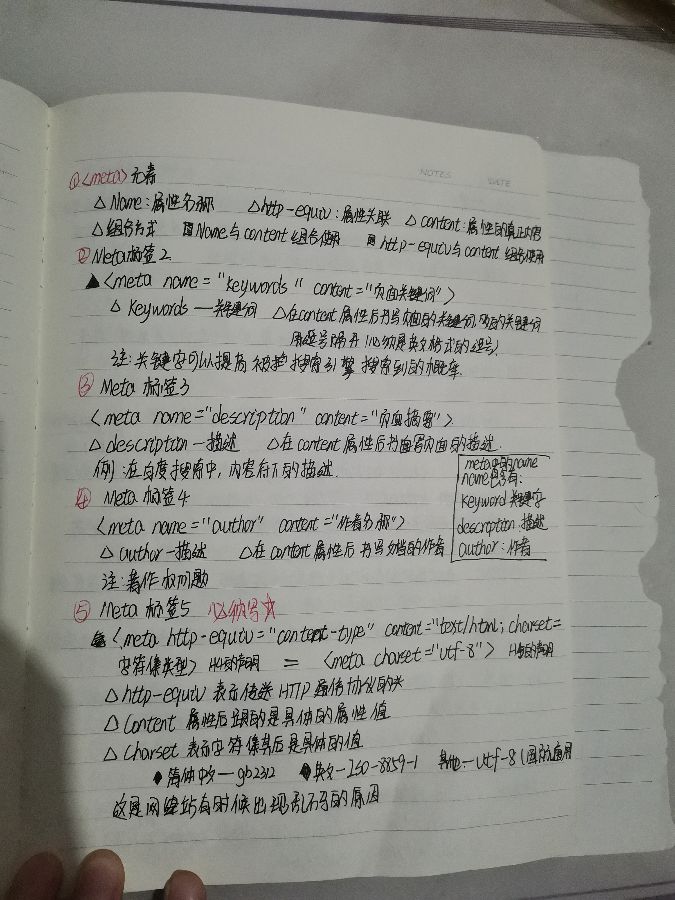 NOTES DATE
①<meta>元素
△ Name:属性名称 △http-equiv:属性关联 △ content:属性的真正内容
△组合方式 Name与content组合使用 http-equiv与content 组合使用
② Meta标签2
▲<meta name="keywords" content="页面关键词">
△ Keywords—关键词 △在content属性后书写页面的关键词,的关键词
用逗号隔开(必须是英文格式的逗号)
注:关键字可以提高被搜索引擎搜索到的概率.
③ Meta 标签3
<meta name="description" content="页面摘要">
△ description—描述 △在content属性后书面写页面的描述.
例:在百度搜索中,内容行下的描述.
④ Meta 标签4
<meta name="author" content="作者名称">
△ author—描述 △在content属性后书写文档的作者
注:著作权问题
meta中的name
name包含有:
keyword 关键字
description:描述
author:作者
⑤ Meta 标签5 必须写☆
<meta http-equiv="content-type" content="text/html; charset=
字符集类型> H4的声明 = <meta charset="utf-8"> H5的声明
△ http-equiv 表示传送HTTP通信协议的头
△ Content 属性后跟的是具体的属性值
△ Charset 表示字符集其后是具体的值
◆简体中文—gb2312 ◆英文—ISO-8859-1 其他:—utf-8(国际通用
这是网络站有时候出现乱码的原因